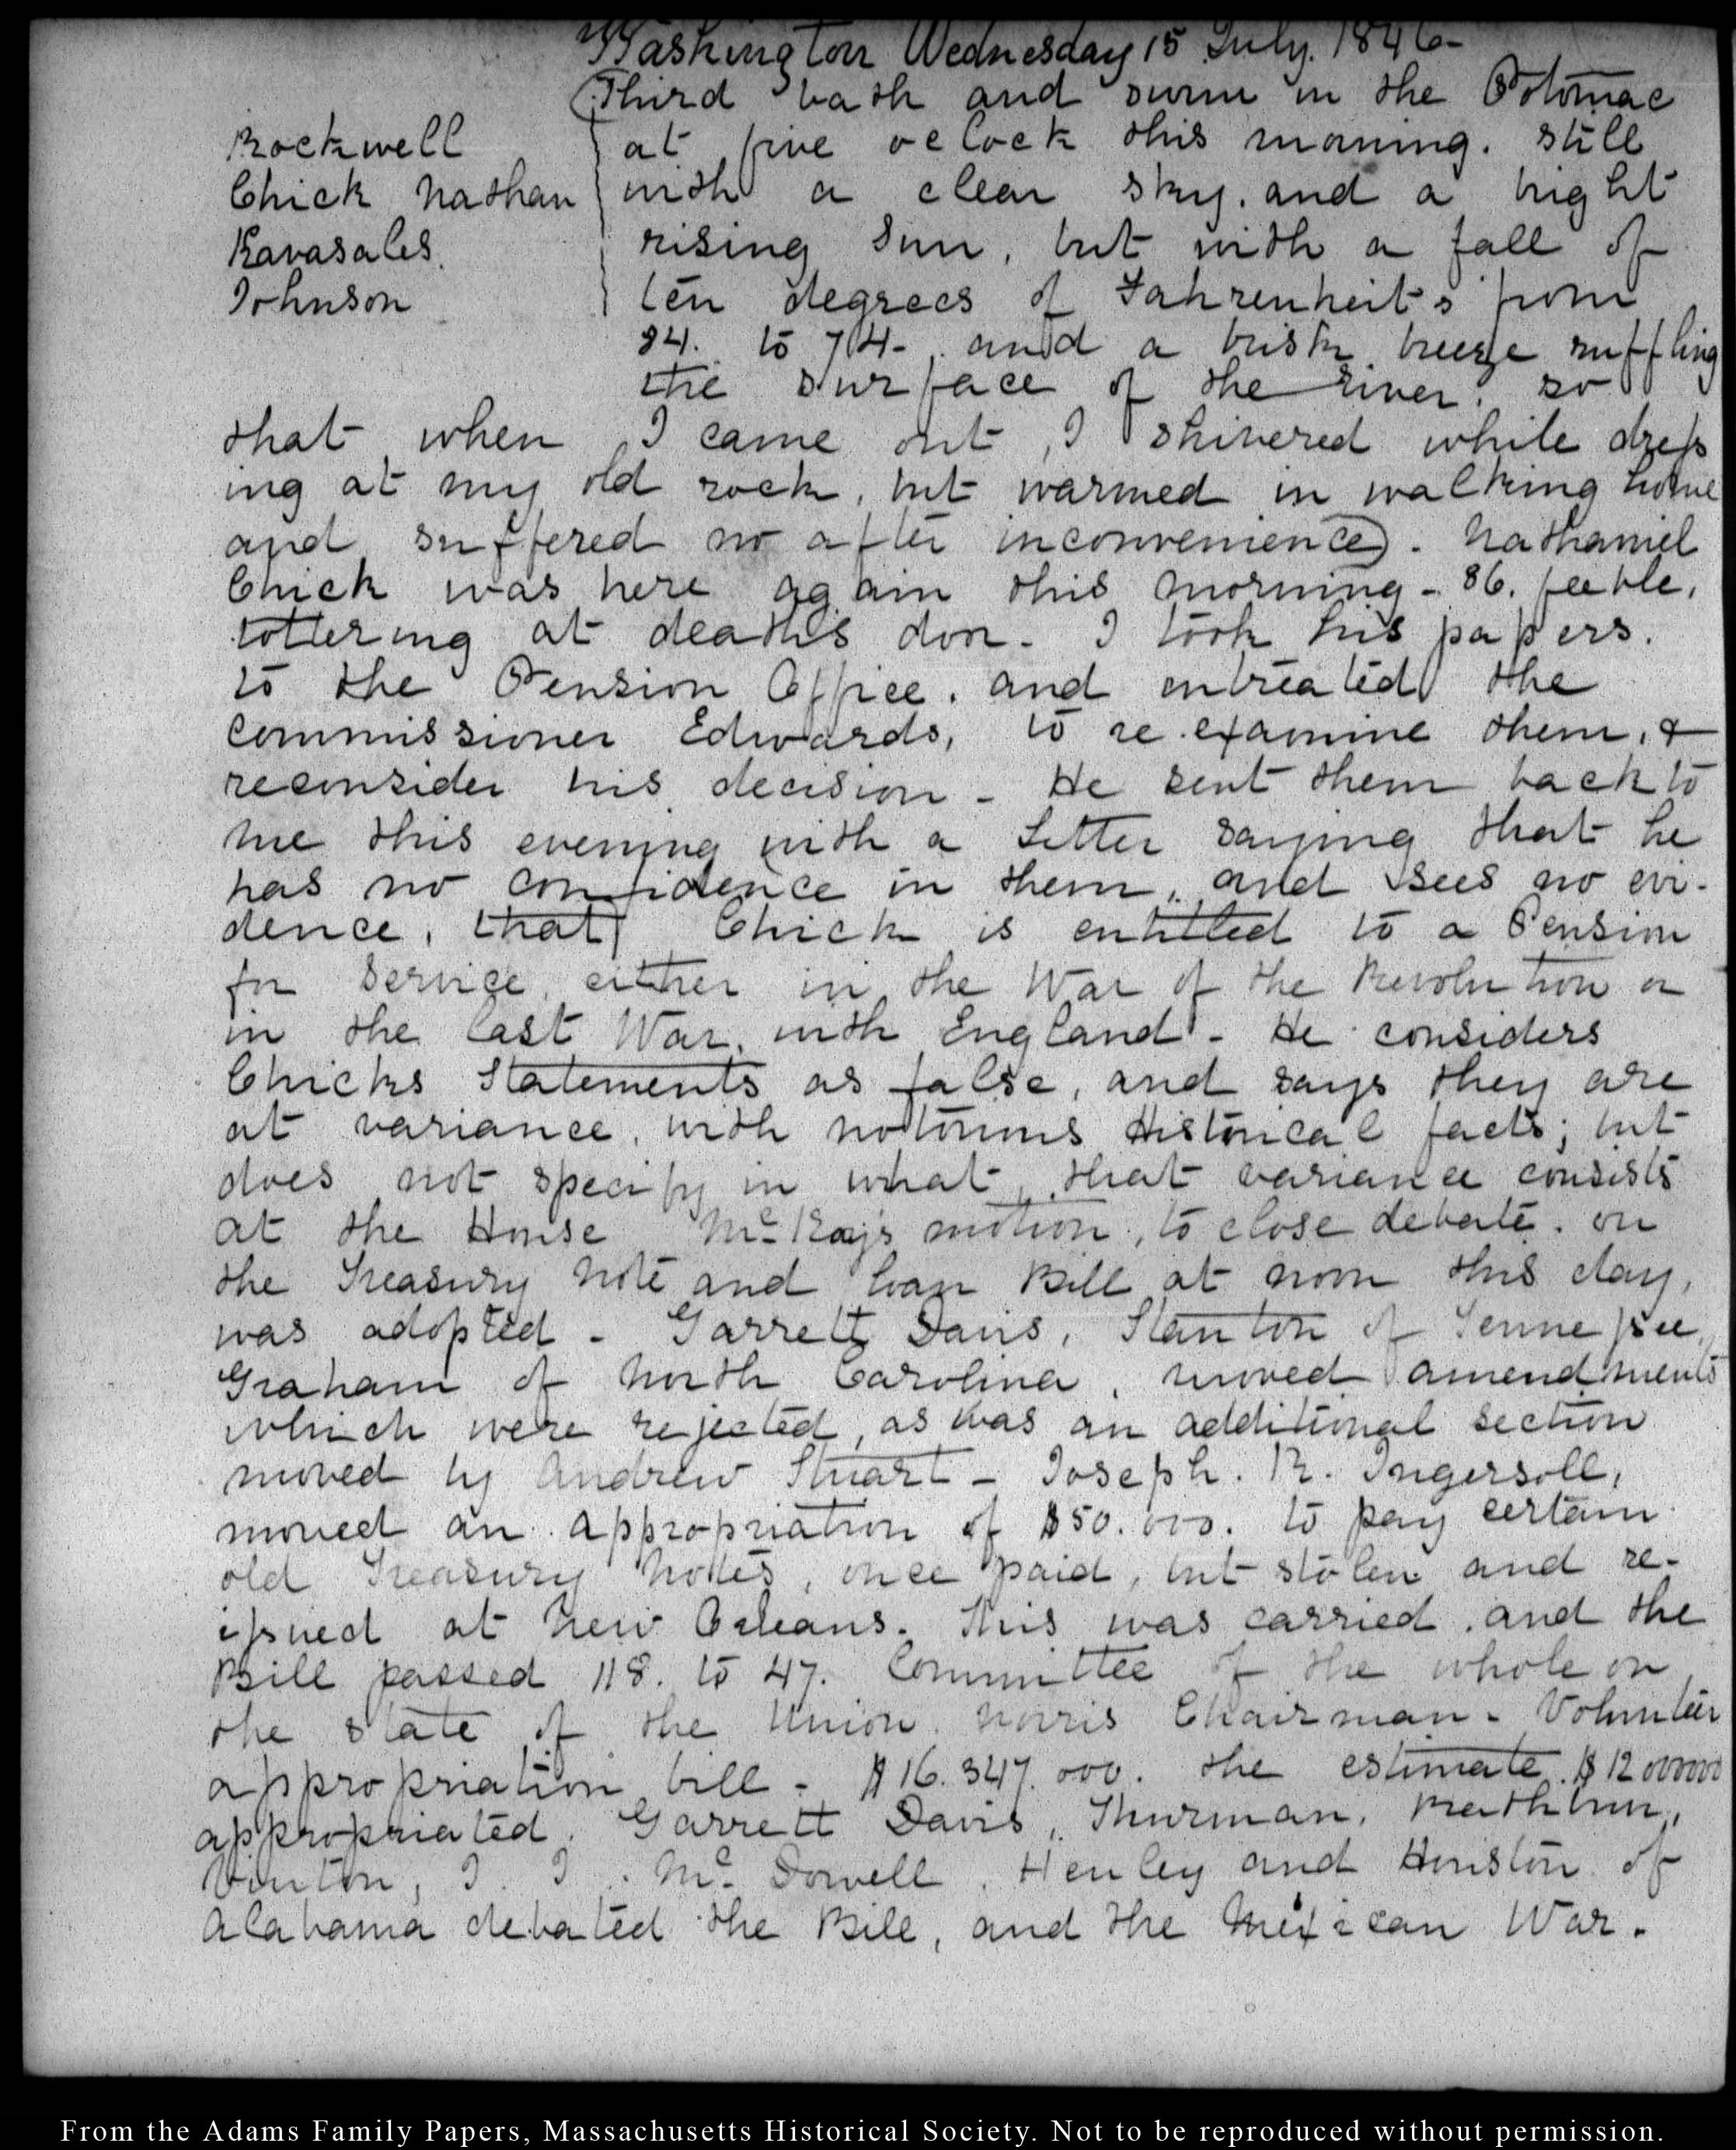 Washington Wednesday 15 July. 1846-
(Third bath and swim in the Potomac
Rockwell
Chick Nathan
Kavasales
Johnson
at five o clock this morning. still
with a clear sky. and a bright
rising Sun, but with a fall of
ten degrees of Fahrenheit's from
84. to 74-. and a brisk breeze ruffling
the surface of the river; so
that when I came out, I shivered while dress
ing at my old rock, but warmed in walking home
and suffered no after inconvenience). Nathaniel
Chick was here again this morning - 86. feeble,
tottering at death's door - I took his papers.
to the Pension Office. and entreated the
Commissioner Edwards, to re-examine them, &
reconsider his decision - He sent them back to
me this evening with a Letter saying that he
has no confidence in them, and sees no evi-
dence, that Chick is entitled to a Pension
for Service either in the War of the Revolution or
in the last War, with England - He considers
Chicks Statements as false, and says they are
at variance, with notorious Historical facts; but
does not specify in what, that variance consists
at the House McKay's motion, to close debate. on
the Treasury Note and Loan Bill at noon this day,
was adopted - Garrett Davis, Stanton of Tennessee,
Graham of North Carolina, moved amendments
which were rejected, as was an additional section
moved by Andrew Stuart - Joseph. R. Ingersoll,
moved an appropriation of $50.000. to pay certain
old Treasury Notes, once paid, but stolen and re-
issued at New Orleans. This was carried. and the
Bill passed 118. to 47. Committee of the whole on
the state of the Union. Norris Chairman - Volunteer
appropriation bill - $16.347.000. the estimate. $12000000
appropriated. Garrett Davis, Thurman, Rathbun,
Vinton, J. J. McDowell, Henley and Houston of
Alabama debated the Bill, and the Mexican War.
From the Adams Family Papers, Massachusetts Historical Society. Not to be reproduced without permission.